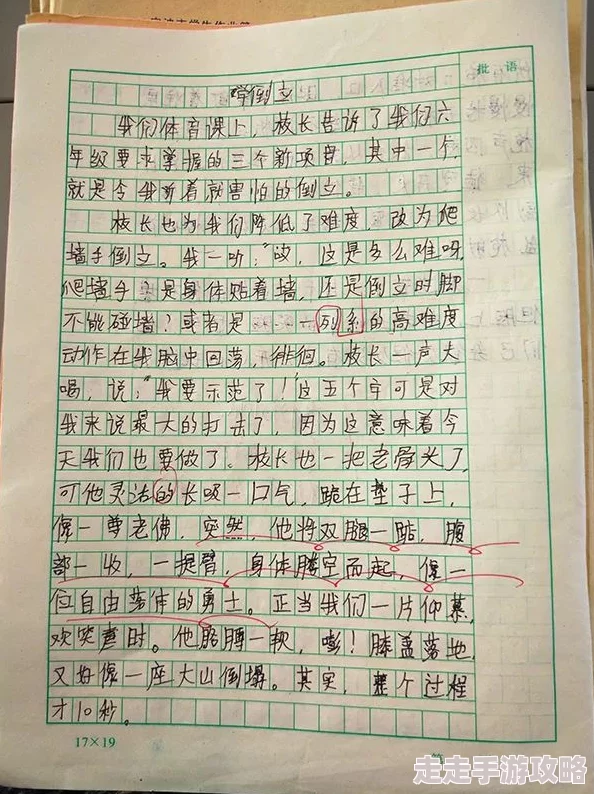 学倒立
我们体育课上，校长告诉了我们六
年级要求掌握的三个新项目，其中一个，
就是令我听着就害怕的倒立。
校长也为我们降低了难度，改为爬
墙手倒立。我一听："哎，这是多么难呀
爬墙手？是身体贴着墙，还是倒立时脚
不能碰墙？或者是……一列系的高难度
动作在我脑中回荡，徘徊。校长一声大
喝，说："我要示范了！这五个字可是对
我来说最大的打击了，因为这意味着今
天我们也要做了。校长也一把老骨头了，
可他灵活的长吸一口气，跪在垫子上，
像一尊老佛，突然，他将双腿一踮，腹
部一收，一提臂，身体腾空而起，像一
位自由落体的勇士。正当我们一片仰慕，
欢笑声时。他胳膊一软，嘭！膝盖落地，
又好像一座大山倒塌。其实，整个过程
才10秒。
批语
17×19
第
走走手游攻略